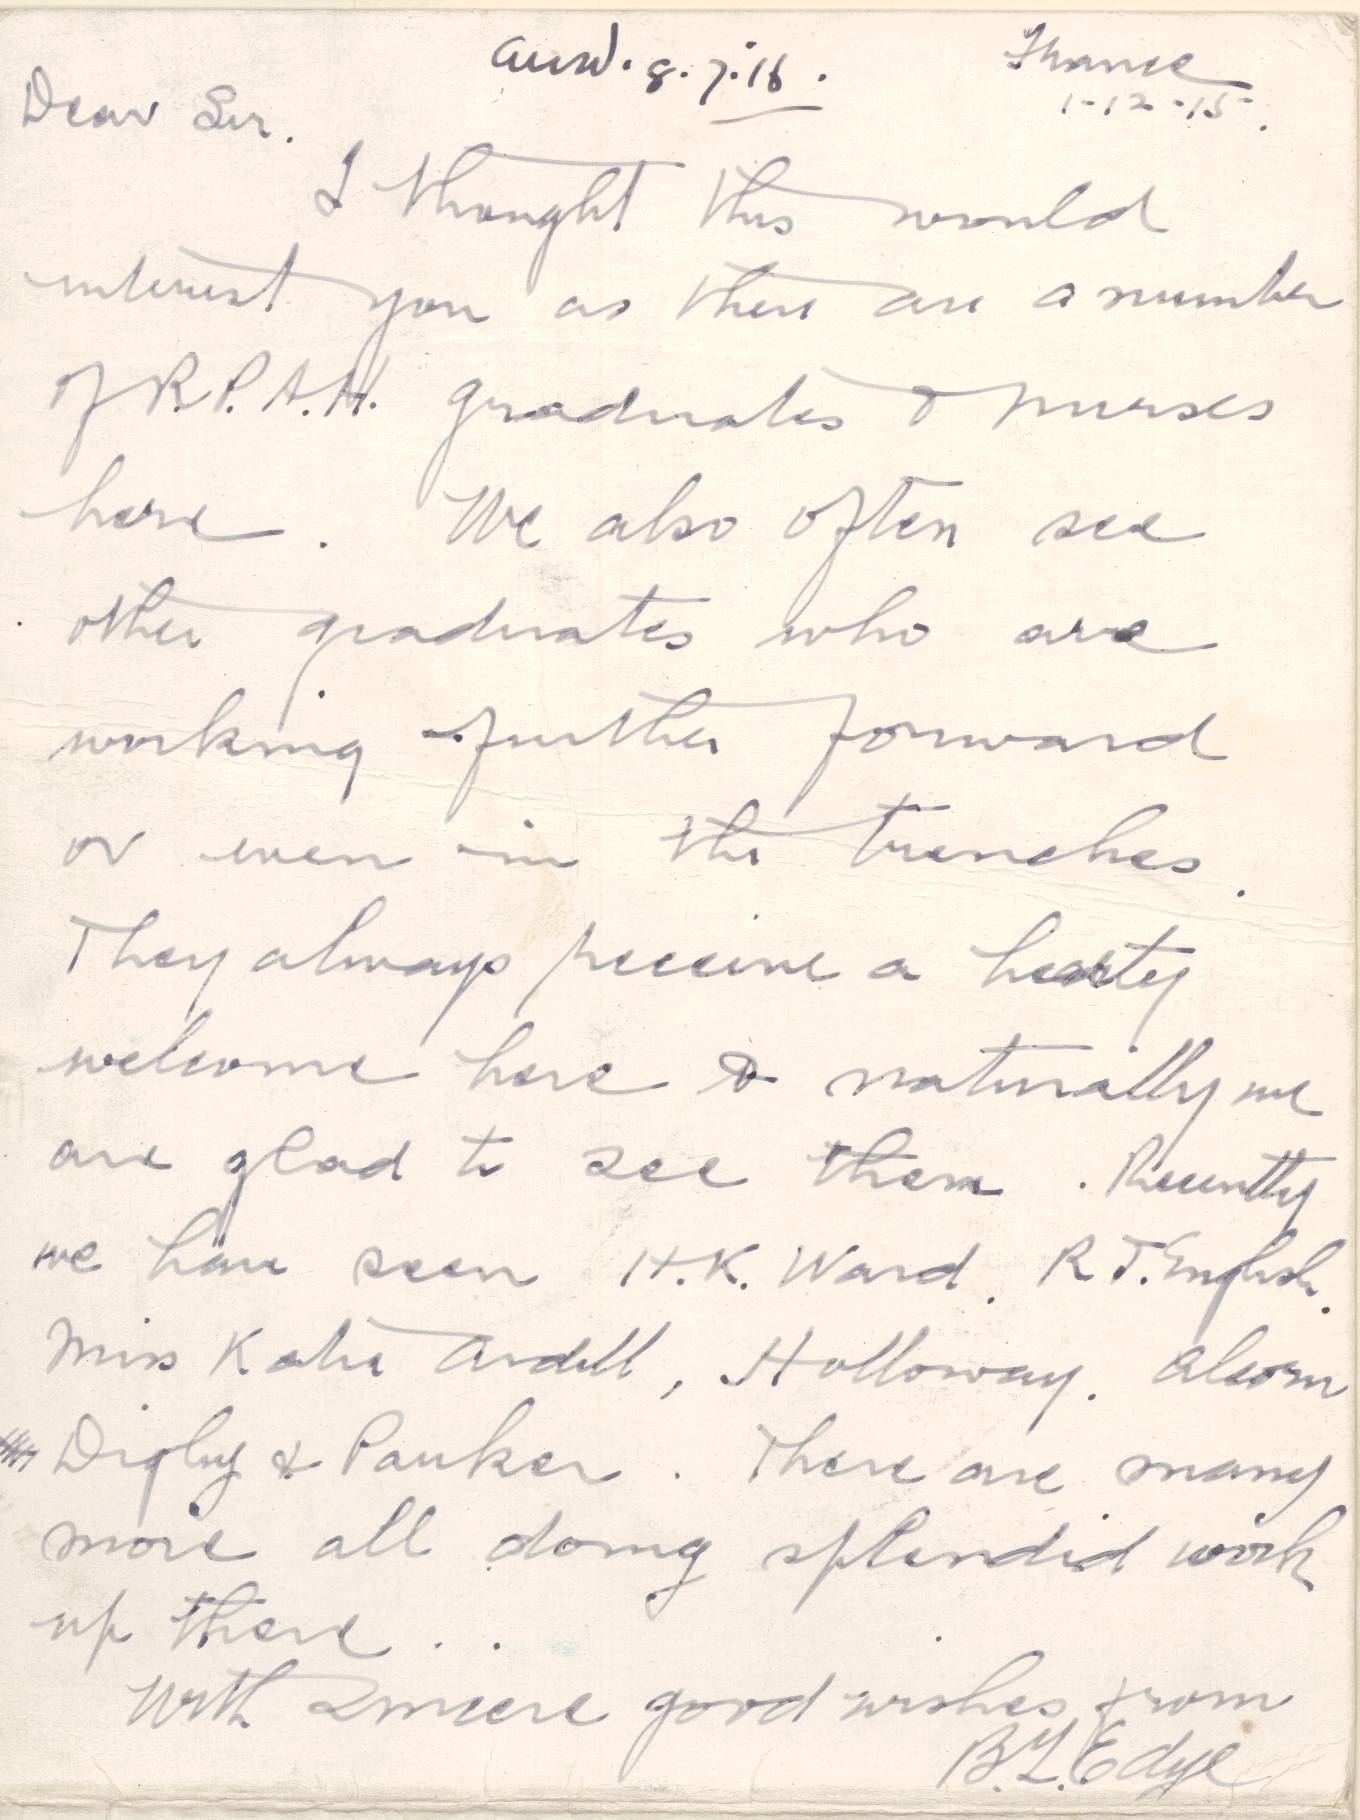 answd. 8.7.16.
France
1-12-15.
Dear Sir.
I thought this would
interest you as there are a number
of R.P.A.H. graduates & nurses
here. We also often see
other graduates who are
working further forward
or even in the trenches.
They always receive a hearty
welcome here & naturally we
are glad to see them. Recently
we have seen H.K. Ward. R.T. English.
Miss Katie Ardill, Holloway. Alcorn
Digby & Parker. There are many
more all doing splendid work
up there..
With sincere good wishes from
B.L. Edye